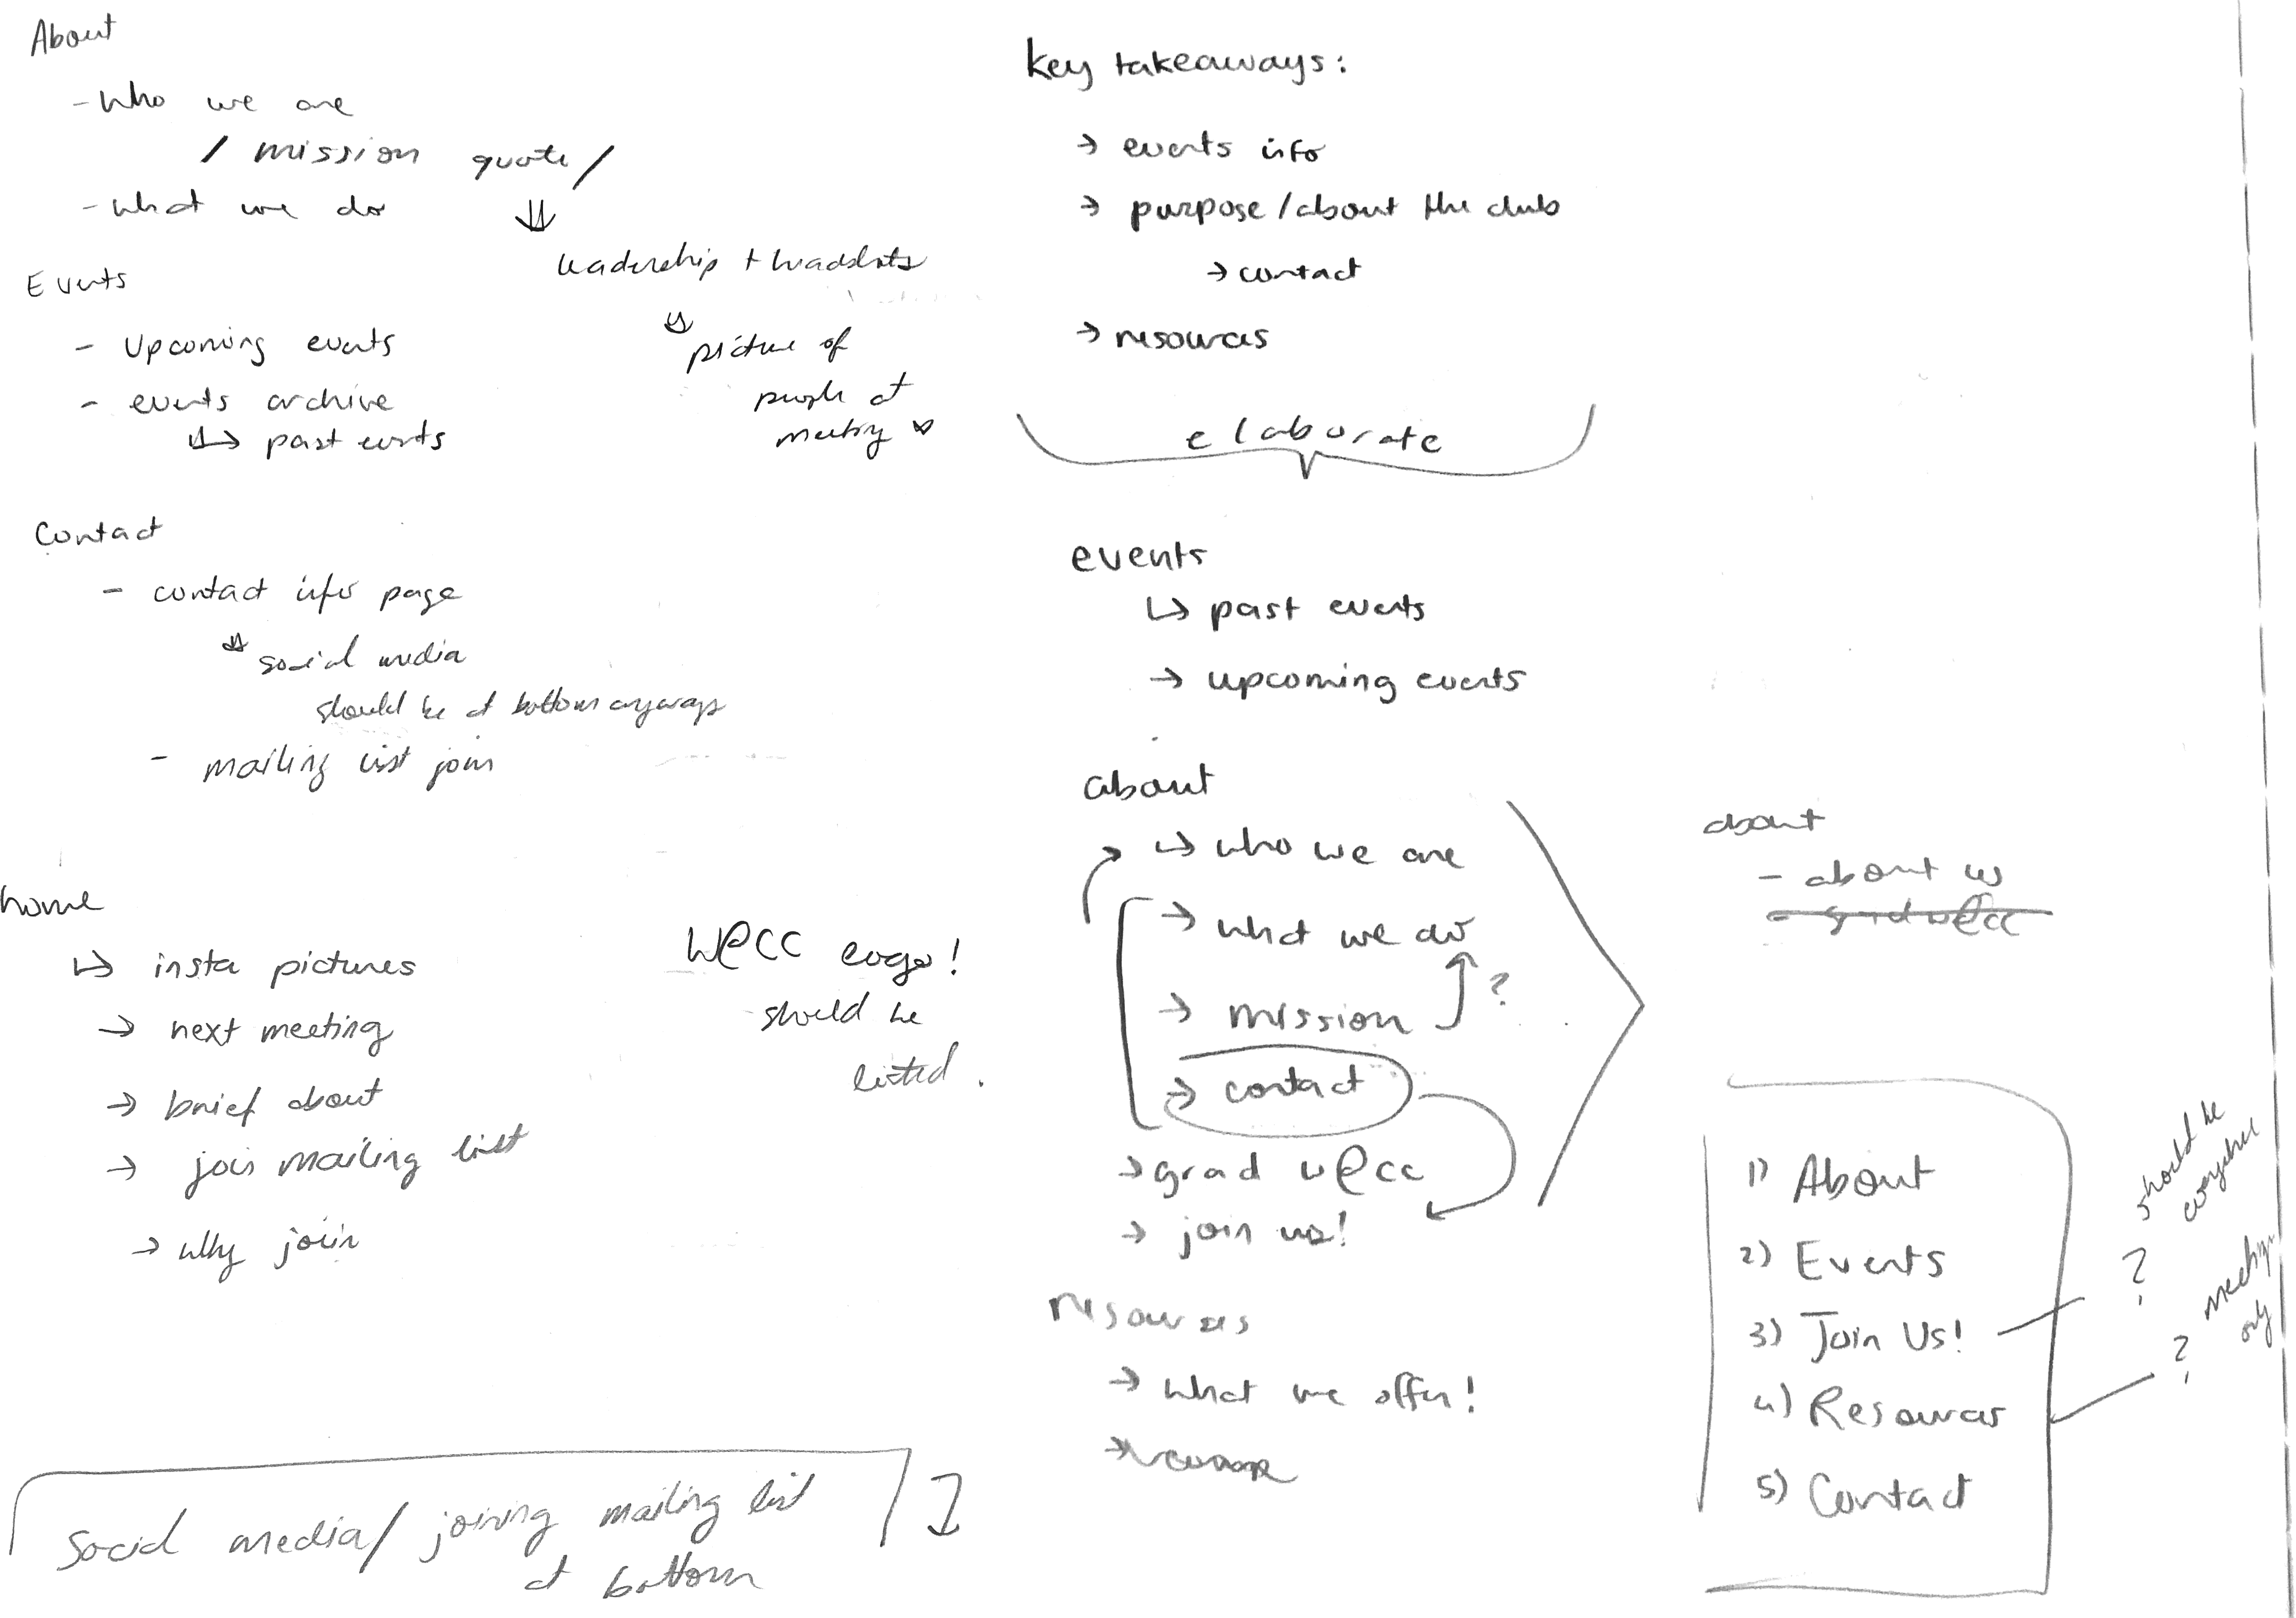 About
- Who we are
/ mission quote /
- what we do
leadership + headshots
picture of
people at
meeting
Events
- Upcoming events
- events archive
↳ past events
Contact
- contact info page
social media
should be at bottom anyways
- mailing list join
home
↳ insta pictures
→ next meeting
→ brief about
→ join mailing list
→ why join
W@CC logo!
should be
listed.
social media/ joining mailing list
at bottom
key takeaways:
→ events info
→ purpose / about the club
→ contact
→ resources
elaborate
events
↳ past events
→ upcoming events
about
↳ who we are
→ what we do
→ mission
?
→ contact
→ grad w@cc
→ join us!
resources
→ what we offer!
about
- about us
- grad w@cc
1) About
2) Events
3) Join Us!
4) Resources
5) Contact
should be
everywhere
?
only
?